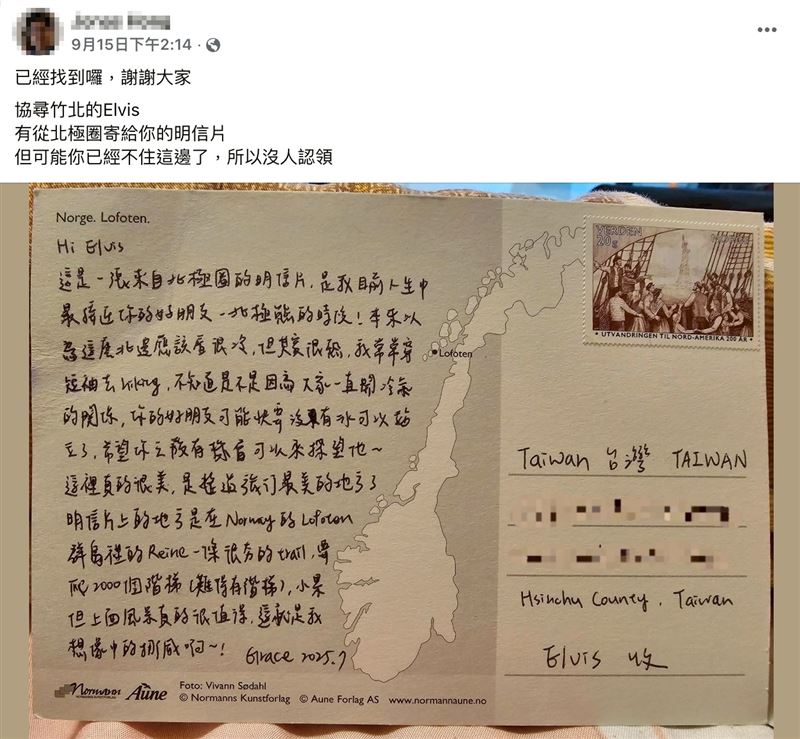 9月15日下午2:14
已經找到囉，謝謝大家
協尋竹北的Elvis
有從北極圈寄給你的明信片
但可能你已經不住這邊了，所以沒人認領
Norge. Lofoten.
Hi Elvis
這是一張來自北極圈的明信片，是我目前人生中
最接近你的好朋友—北極熊的時候！本來以
為這麼北邊應該會很冷，但其實很熱，我常常穿
短袖去hiking，不知道是不是因為大家一直開冷氣
的關係，你的好朋友可能快要沒有冰可以站
立了，希望你之後有機會可以來探望他~
這裡真的很美，是
最美的地方了
明信片上的地方是在Norway的Lofoten
群島裡的Reine一條很夯的trail，要
爬2000個階梯（難得有階梯），小累
但上面風景真的很值得，這就是我
想像中的挪威啊~！
Grace 2025.7
VERDEN
20g
NORGE
• UTVANDRINGEN TIL NORD-AMERIKA 200 ÅR •
Lofoten
Taiwan 台灣 TAIWAN
Hsinchu County, Taiwan
Elvis 收
Normann Aune
Foto: Vivann Sødahl
© Normanns Kunstforlag © Aune Forlag AS www.normannaune.no